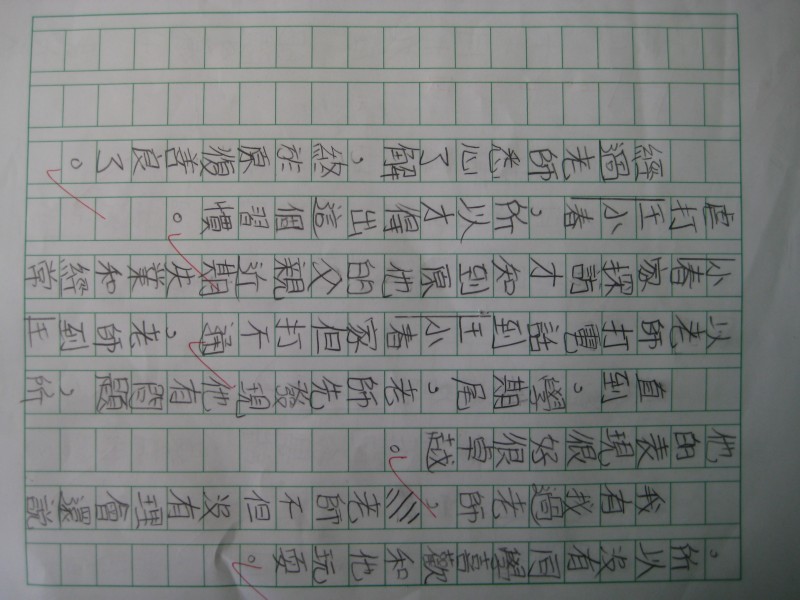 。所以沒有同學喜歡和他玩耍。
我有找過老師，老師不但沒有理會還說
他的表現很好很卓越。
直到。學期尾，老師先發現他有問題，所
以老師打電話到王小春家但打不通，老師到王
小春家探訪才知到原他的父親近期失業和經常
虐打王小春，所以才得出這個習慣。
經過老師悉心了解，終於原復善良了。